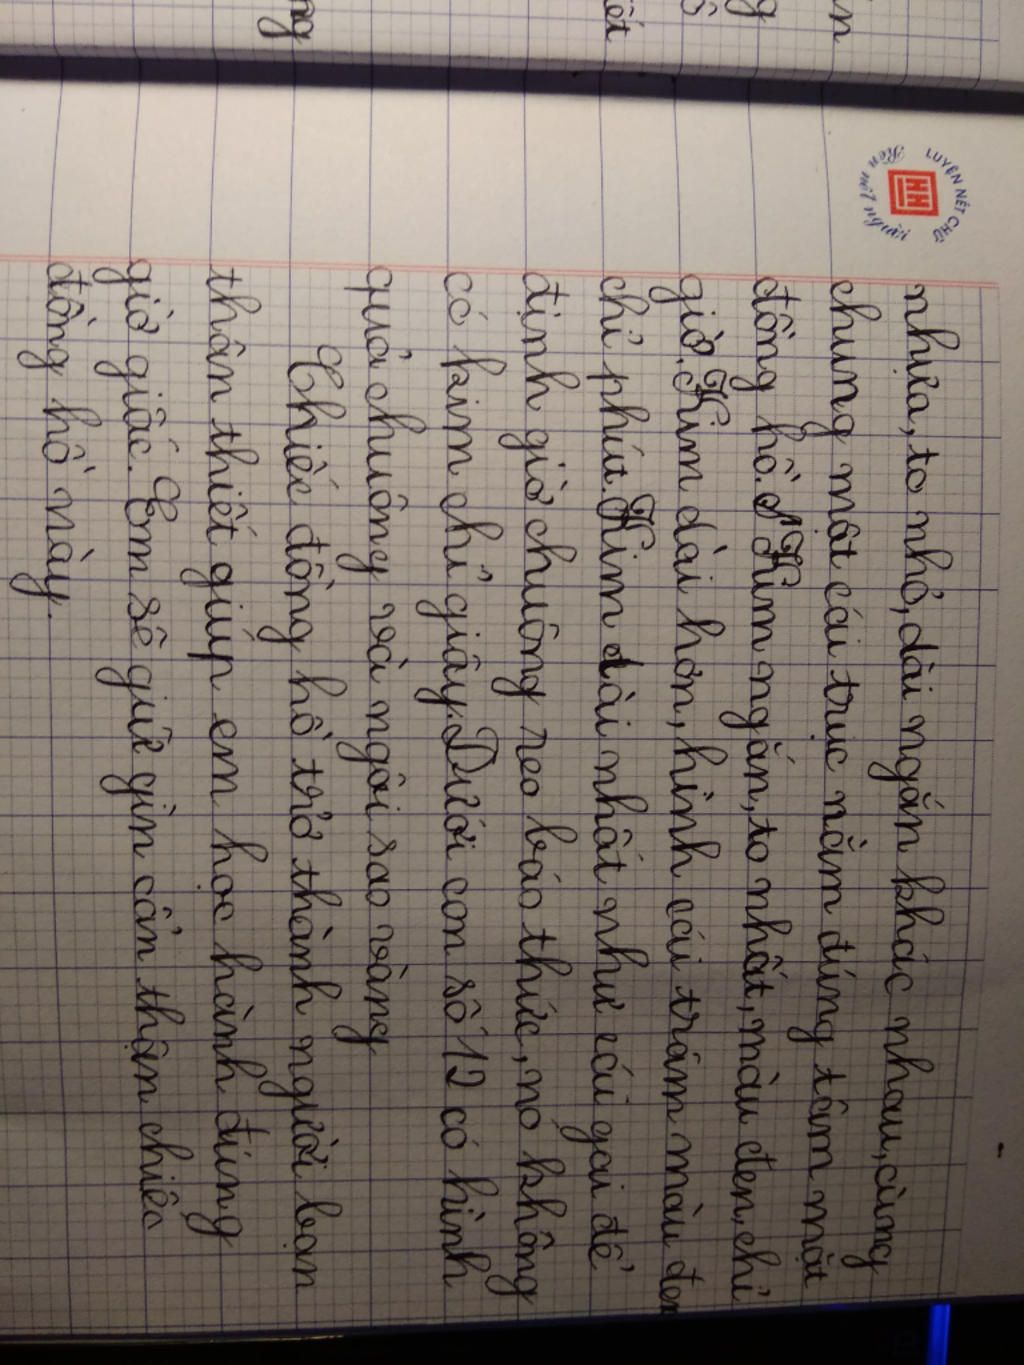 LUYỆN NÉT CHỮ
Rèn nết người
HH
nhựa, to nhỏ, dài ngắn khác nhau, cùng
chung một cái trục nằm đúng tâm mặt
đồng hồ. Kim ngắn, to nhất, màu đen, chỉ
giờ. Kim dài hơn, hình cái trâm màu đen
chỉ phút. Kim dài nhất như cái gai để
định giờ chuông reo báo thức, nó không
có kim chỉ giây. Dưới con số 12 có hình
quả chuông và ngôi sao vàng
Chiếc đồng hồ trở thành người bạn
thân thiết giúp em học hành đúng
giờ giấc. Em sẽ giữ gìn cẩn thận chiếc
đồng hồ này.